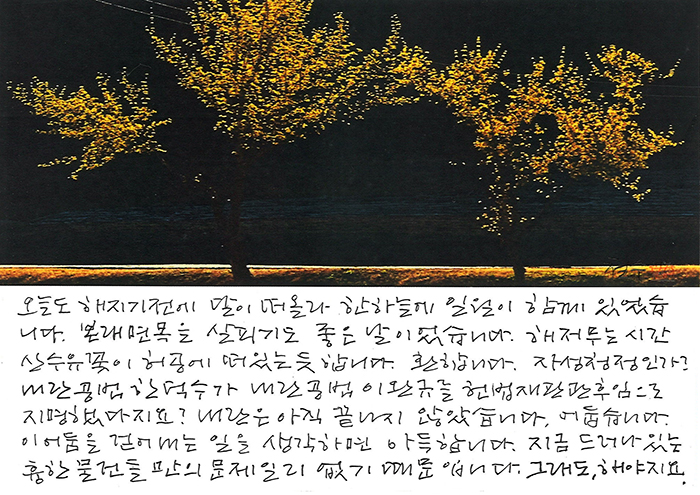 오늘도 해지기전에 달이 떠올라 한하늘에 일월이 함께 있었습
니다. 본래면목을 살피기도 좋은 날이었습니다. 해저무는 시간
산수유꽃이 허공에 떠있는듯 합니다. 환합니다. 자성청정인가?
내란공범 한덕수가 내란공범 이완규를 헌법재판관후임으로
지명했다지요? 내란은 아직 끝나지 않았습니다. 어둡습니다.
이어둠을 걷어내는 일을 생각하면 아득합니다. 지금 드러나있는
흉한 물건들 만의 문제일리 없기 때문입니다. 그래도, 해야지요.